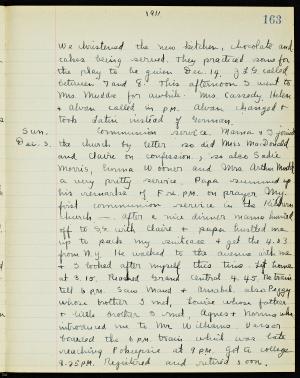 1911
163
We christened the new kitchen, chocolate and
cakes being served. They practiced some for
the play to be given Dec. 19. J & S called
between 7 and 8. This afternoon I went to
Mrs. for awhile. Mrs. Cassedy, Helen
+ Alvan called in p.m. Alvan changed +
took Latin instead of German.
Sun. Communion service. Mama + I joined
Dec. 3. the church by letter. so did Miss MacDonald
and Claire on confession, so also Sadie
Morris, Emma Woods and Mrs. Arthur
a very pretty service. Papa summed up
his remarks of F. p.m. on prayer. My
first communion service in the
church — after a nice dinner mama hurried
off to S.S. with Claire + papa hustled me
up to pack my suitcase + get the 4.03
from N.Y. He walked to the avenue with me
+ I looked after myself this time. Left home
at 3.15. Reached Grand Central 4.45. The train
till 6 p.m. Saw Maud + Annabel, also Peggy
whose brother I met, Louise whose father
+ little brother I met, Agnes + Norma who
introduced me to Mr. Williams. Vassar
boarded the 6 p.m. train which was late
reaching Po'keepsie at 9 P.M. Got to college
9.25 P.M. Registered and retired soon.